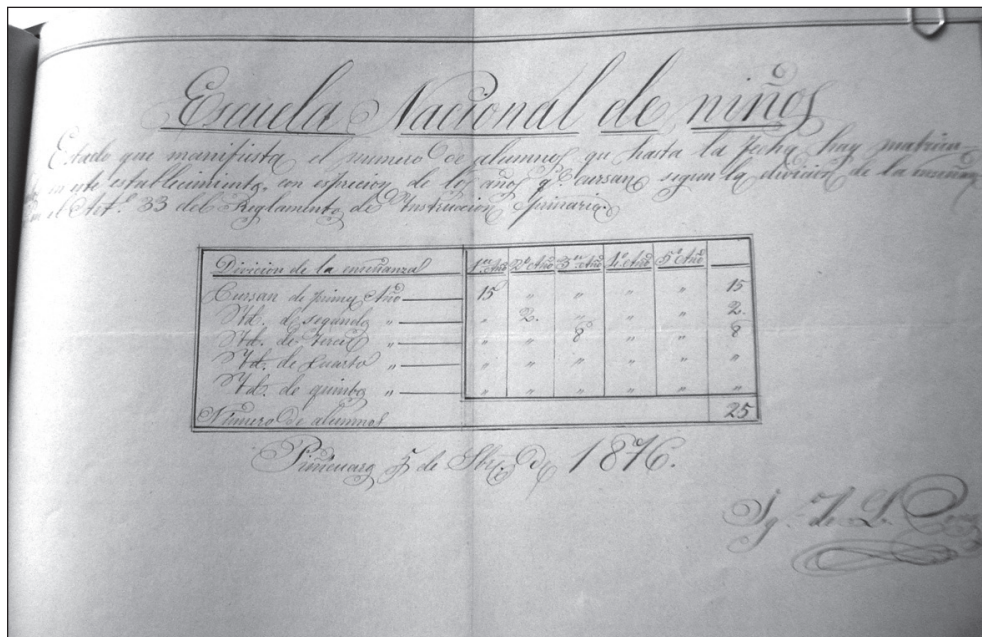 Escuela Nacional de niños
Estado que manifiesta el numero de alumnos que hasta la fecha hay matricu-
en este establecimiento, con esprecion de los años qe. cursan segun la division de la enseñan
en el Art.º 33 del Reglamento de Instruccion primaria.
Divicion de la enseñanza 1er. Año 2º Año 3er. Año 4º Año 5º Año
Cursan de primer Año 15 " " " " 15
Id. de segundo " " 2. " " " 2.
Id. de tercero " " " 8 " " 8
Id. de cuarto " " " " " " "
Id. de quinto " " " " " " "
Número de alumnos 25
5 de de 1876.